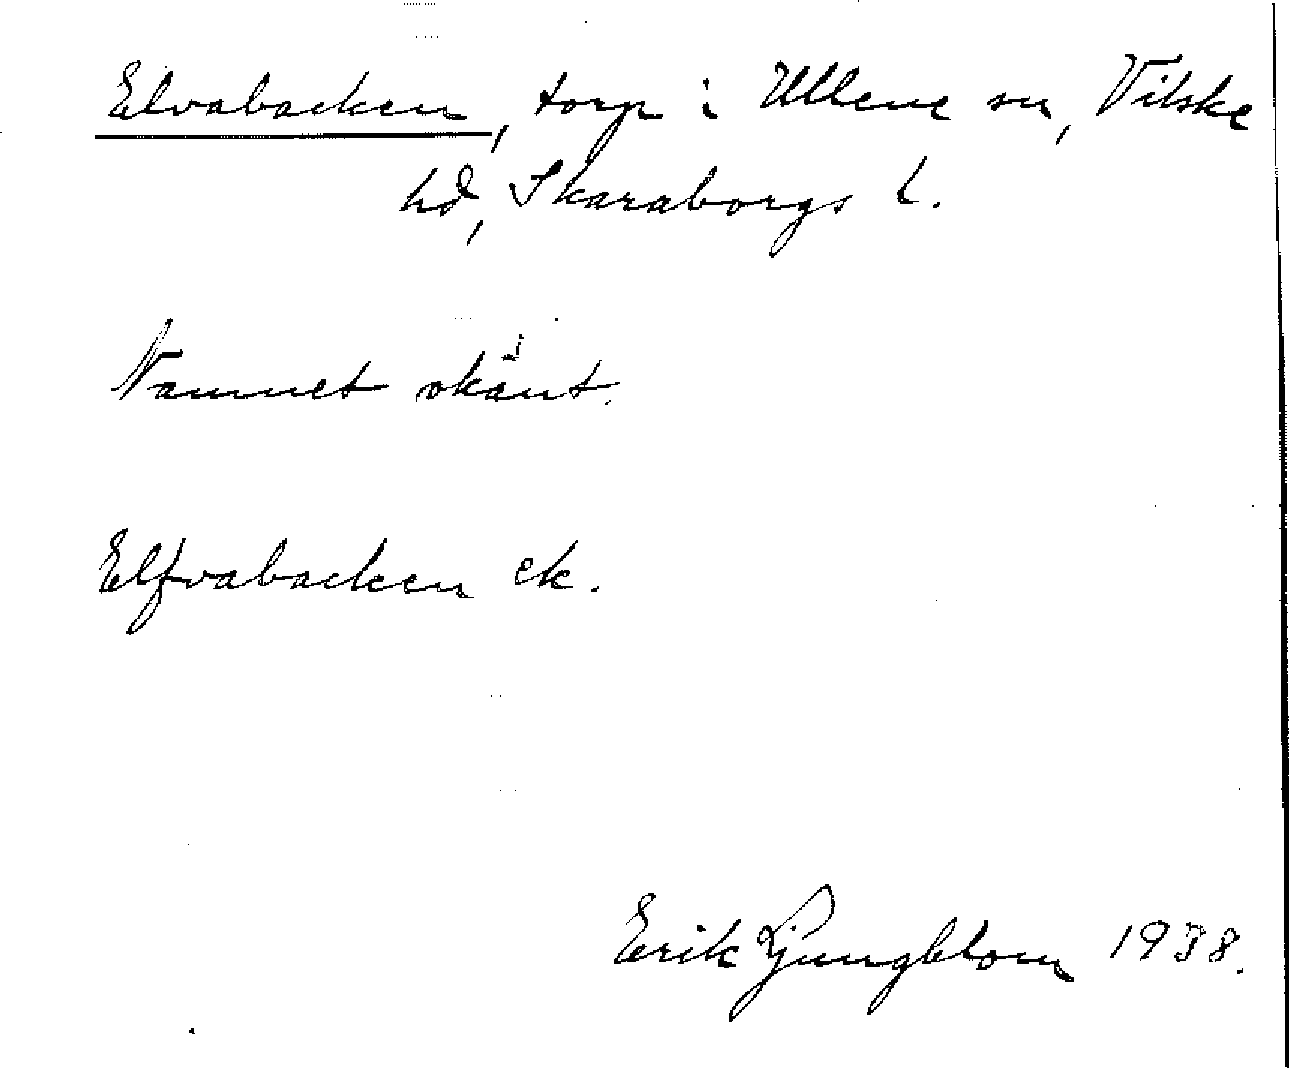 Elvabacken, torp i Ullene sn, Vilske
hd, Skaraborgs l.
Namnet okänt.
Elfvabacken ek.
Erik Ljungblom 1938.